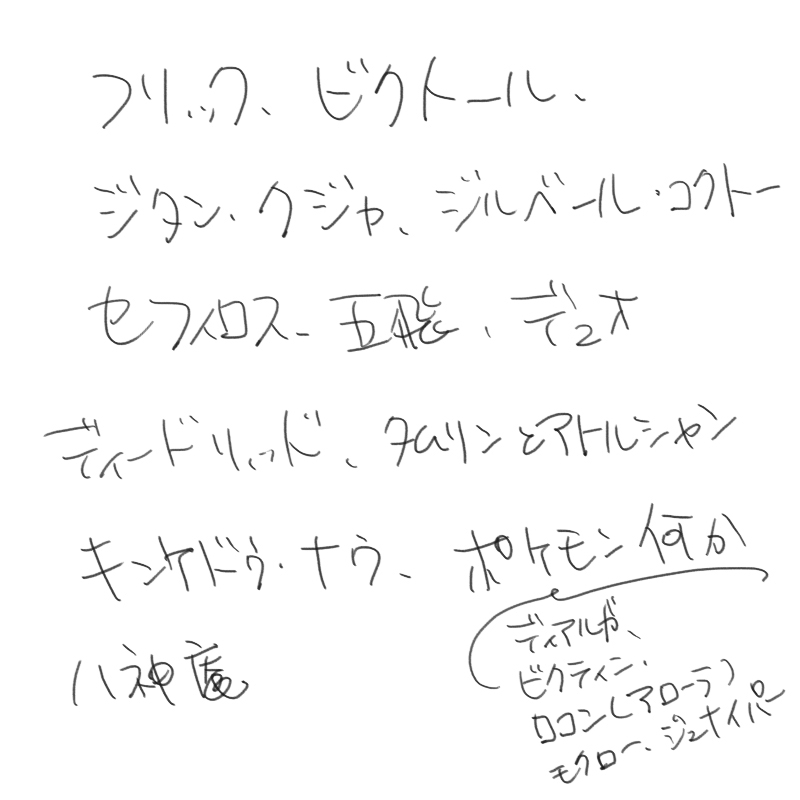 フリック、ビクトール、
ジタン、クジャ、ジルベール・コクトー
セフィロス、五飛、デュオ
ディードリッド、タムリンとアトルシャン
キンケドゥ・ナウ、ポケモン何か
ディアルガ、
ビクティニ、
ロコン(アローラ)
モクロー、ジュナイパー
八神庵